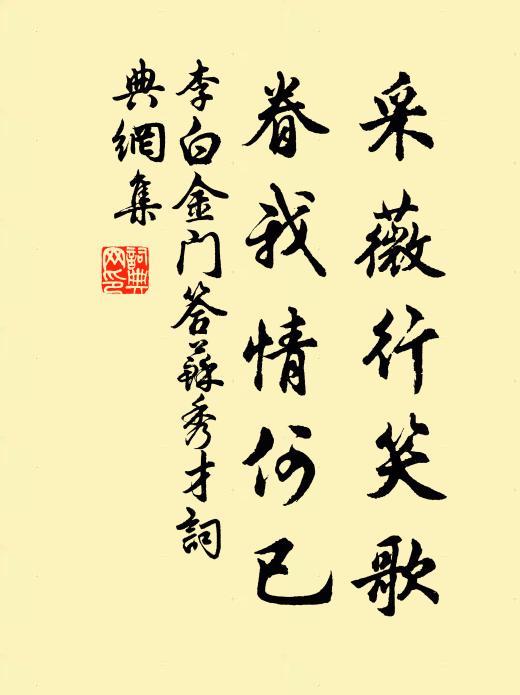 采薇行笑歌
眷我情何已
李白金門答蘇秀才詞
典網集
詞典網印